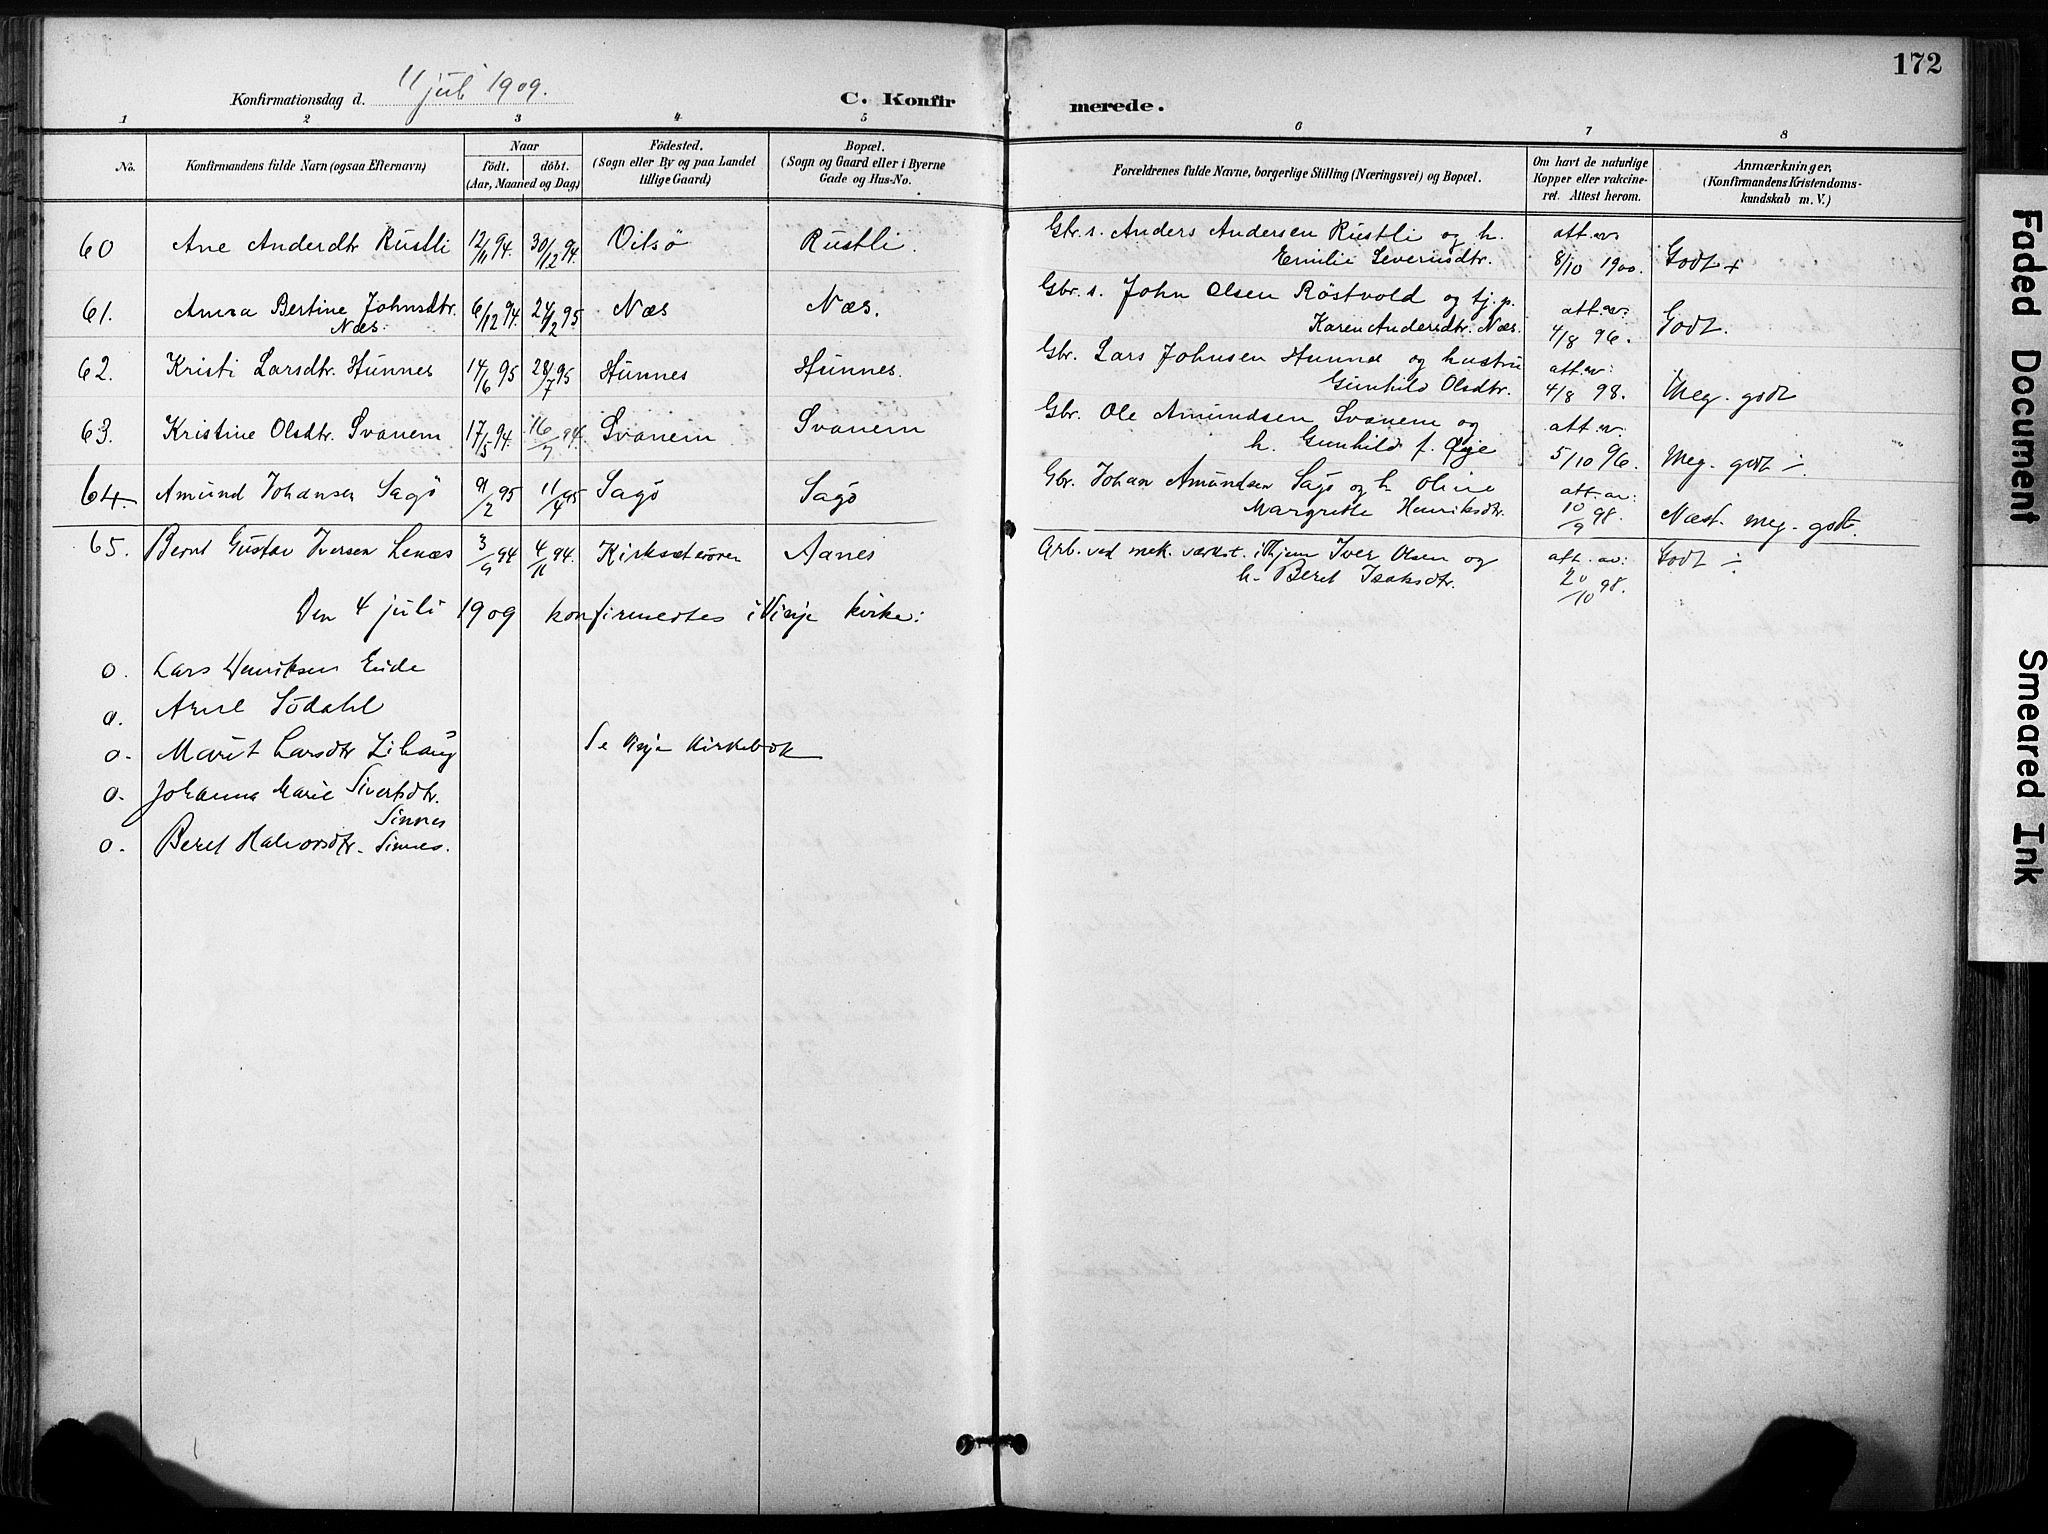 172
Konfirmationsdag d. 11 juli 1909.
C. Konfirmerede.
1 2 3 4 5 6 7 8
No.
Konfirmandens fulde Navn (ogsaa Efternavn)
Naar
födt. döbt.
(Aar, Maaned og Dag)
Födested.
(Sogn eller By og paa Landet
tillige Gaard)
Bopæl.
(Sogn og Gaard eller i Byerne
Gade og Hus-No.
Forældrenes fulde Navne, borgerlige Stilling (Næringsvei) og Bopæl.
Om havt de naturlige
Kopper eller vakcine-
ret. Attest herom.
Anmærkninger.
(Konfirmandens Kristendoms-
kundskab m. V.)
60 Ane Andersdtr Rustli 12/11 94. 30/12 94. Oilsö Rustli. Gbr. s. Anders Andersen Rustli og h. att. av
Emilie Severinsdtr. 8/10 1900. Godt +
61. Anna Bertine Johnsdtr. 6/12 94. 24/2 95 Næs Næs. Gbr. s. John Olsen Röstvold og tj. p. att. av
Næs Karen Andersdtr. Næs. 4/8 96. Godt.
62. Kristi Larsdtr. Hunnes 14/6 95 28/7 95 Hunnes Hunnes. Gbr. Lars Johnsen Hunnes og hustru att. av:
Gunhild Olsdtr. 4/8 98. Meg. godt
63. Kristine Olsdtr. Svanem 17/5 94. 16/7 94. Svanem Svanem Gbr. Ole Amundsen Svanem og att. av.
h. Gunhild f. Øie 5/10 96. Meg. godt ÷.
64. Amund Johansen Sagö 9/2 95 11/4 95 Sagö Sagö Gbr. Johan Amundsen Sagö og h. Oline att. av:
Margrethe Henriksdtr. 10/9 98. Næst. meg. godt.
65. Bernt Gustav Iversen Lenæs 3/9 94 4/11 94. Kirksæterören Aanes Arb. ved mek. værkst. i Thjem Iver Olsen og att. av: Godt ÷
h. Beret Isaksdtr. 20/10 98.
Den 4 juli 1909 konfirmertes i Vinje kirke:
o. Lars Henriksen Eide
o. Arne Södahl
o. Marit Larsdtr Lihaug Se Vinje Kirkebok
o. Johanna Marie Sivertsdtr.
Sinnes
o. Beret Halvorsdtr. Sinnes.
Faded Document
Smeared Ink